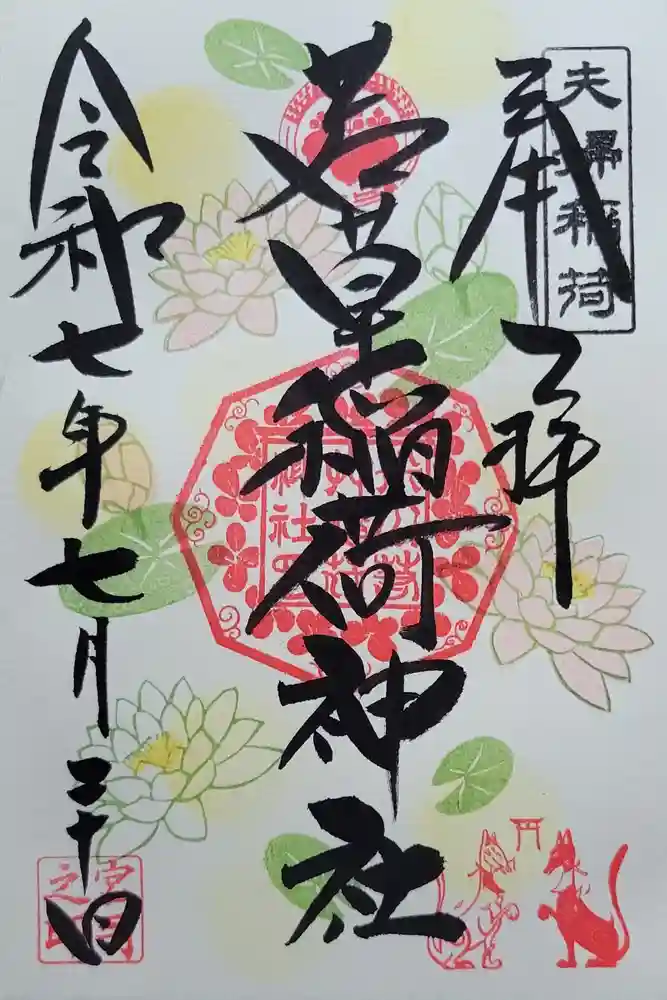 夫婦稲荷
奉拝
若草稲荷神社
令和七年七月二十日
宮司之印